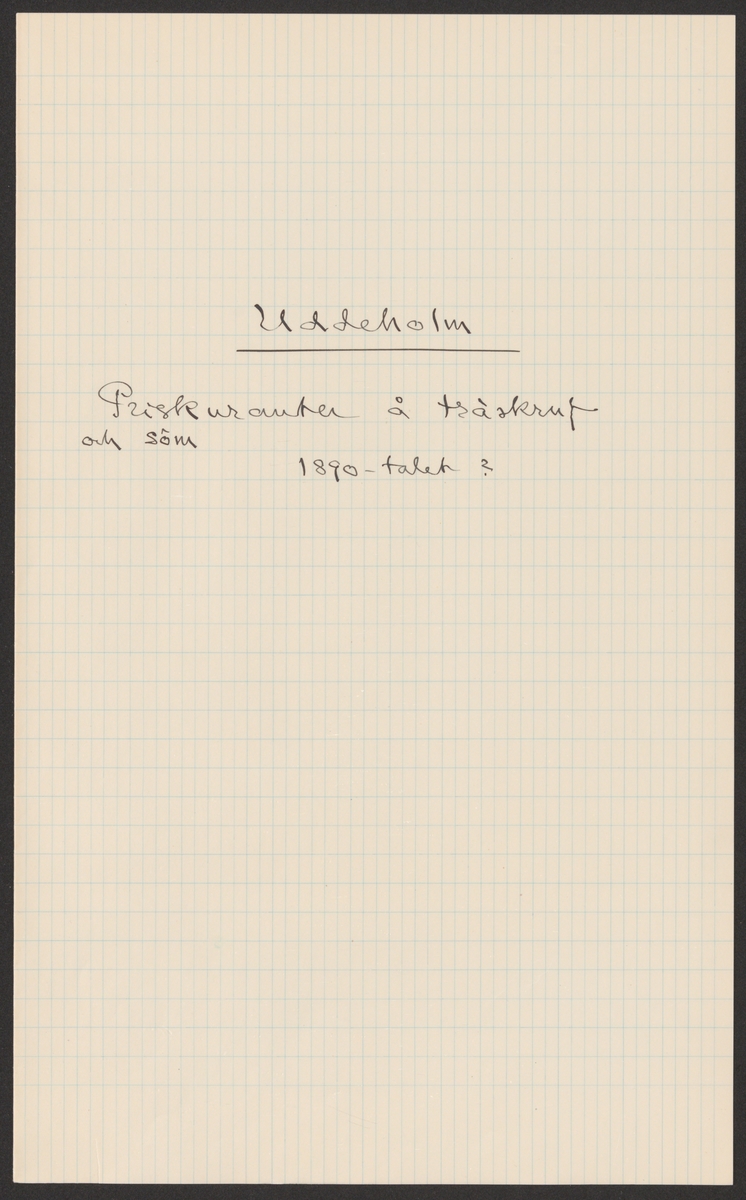 Uddeholm
Priskuranter å träskruf
och söm
1890-talet ?